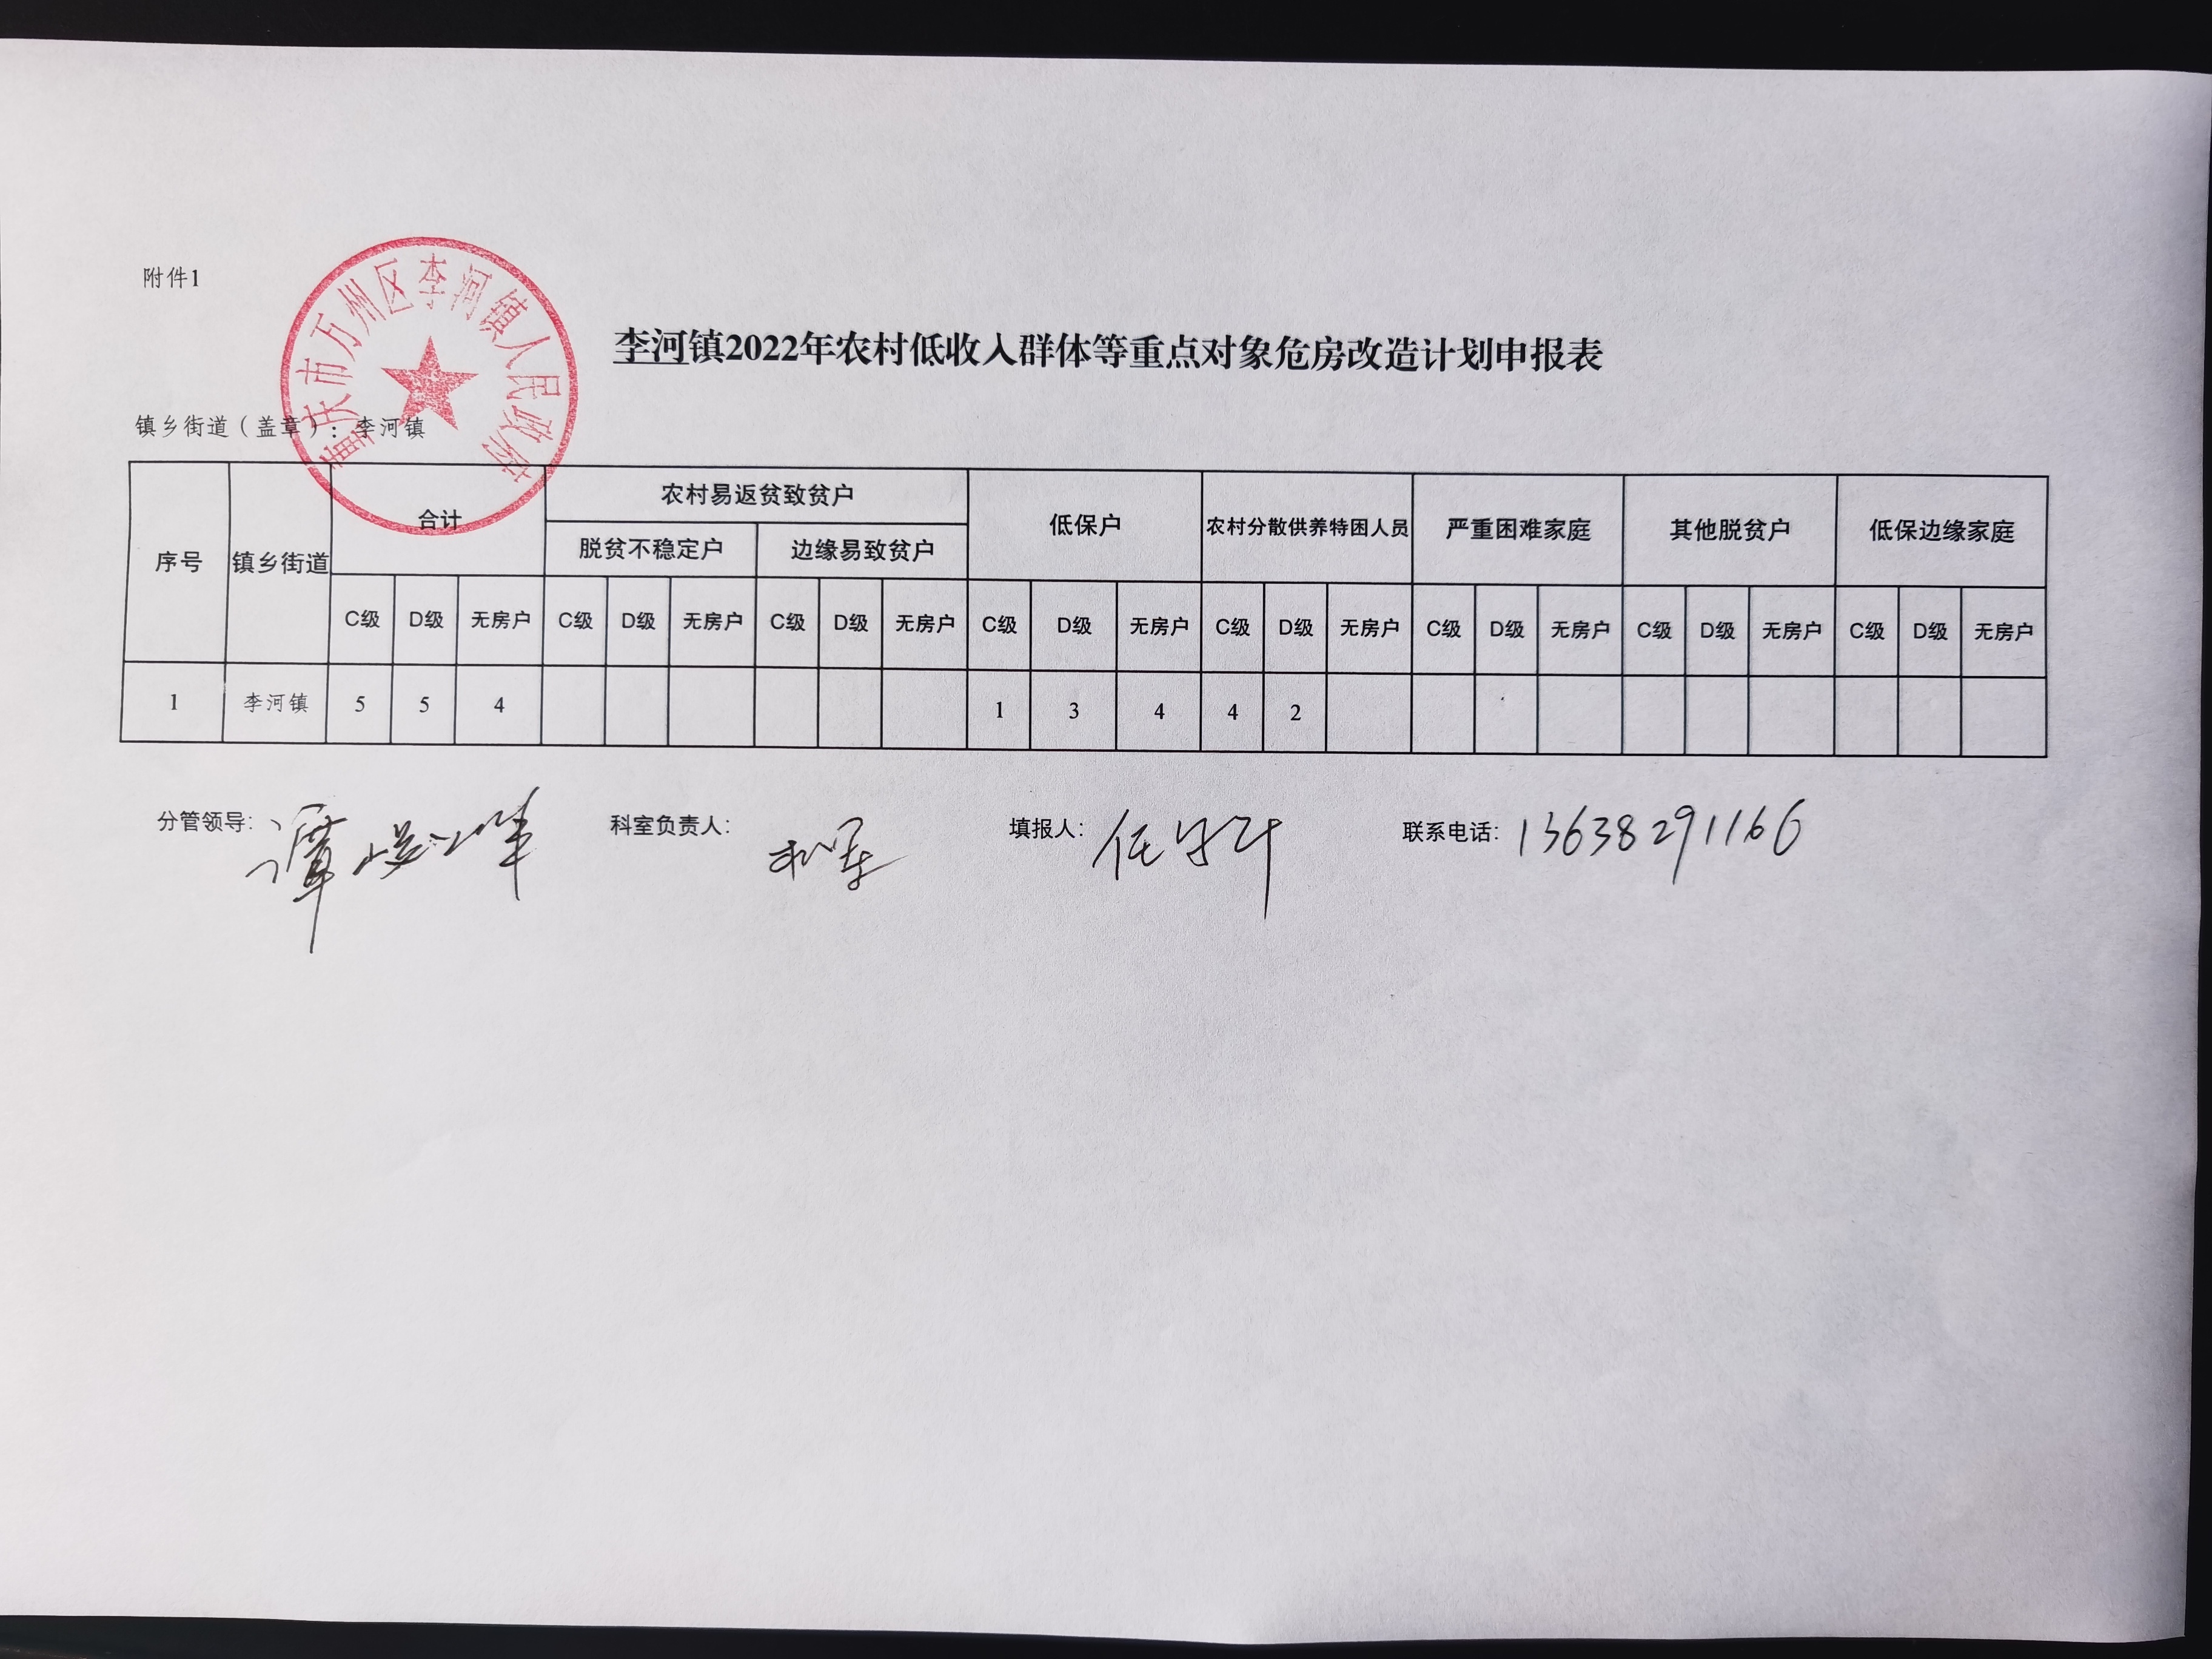 附件1
重庆市万州区李河镇人民政府
李河镇2022年农村低收入群体等重点对象危房改造计划申报表
镇乡街道（盖章）：李河镇
序号 镇乡街道 合计 农村易返贫致贫户 低保户 农村分散供养特困人员 严重困难家庭 其他脱贫户 低保边缘家庭
脱贫不稳定户 边缘易致贫户
C级 D级 无房户 C级 D级 无房户 C级 D级 无房户 C级 D级 无房户 C级 D级 无房户 C级 D级 无房户 C级 D级 无房户 C级 D级 无房户
1 李河镇 5 5 4 1 3 4 4 2
分管领导: 谭 科室负责人： 填报人： 任 联系电话：13638291166